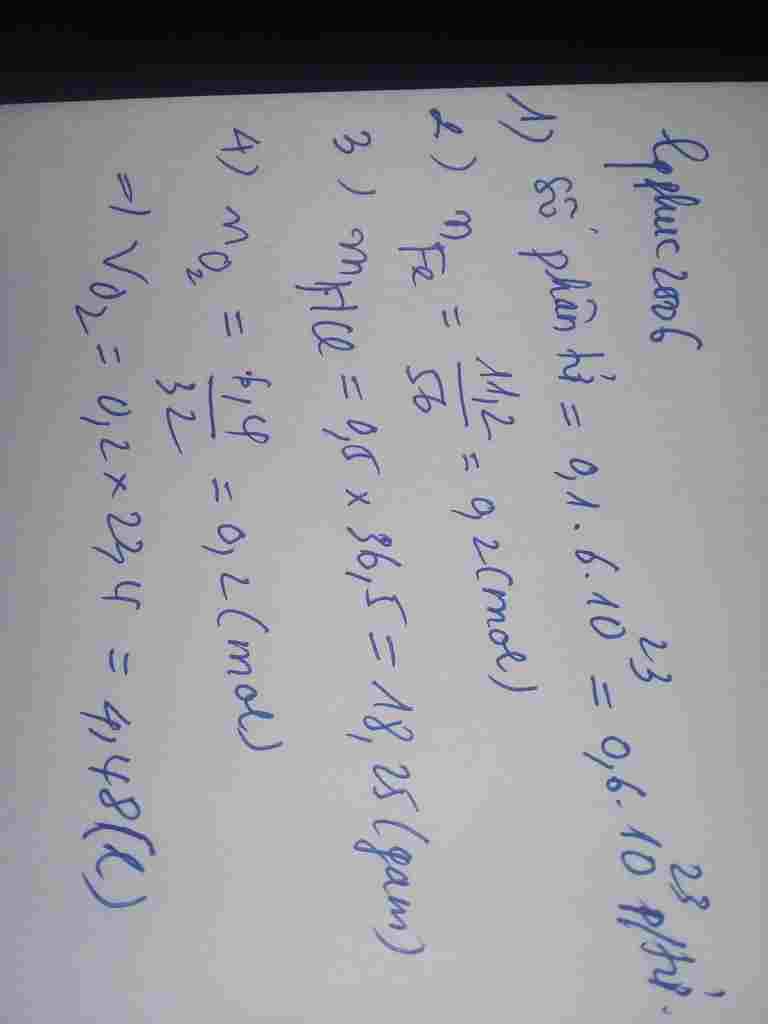 lqphuc2006
1) Số phân tử = 0,1 . 6 . 10^23 = 0,6 . 10^23 p/tử.
2) n_Fe = 11,2/56 = 0,2 (mol)
3) m_HCl = 0,5 × 36,5 = 18,25 (gam)
4) n_O2 = 6,4/32 = 0,2 (mol)
=> V_O2 = 0,2 × 22,4 = 4,48 (l)